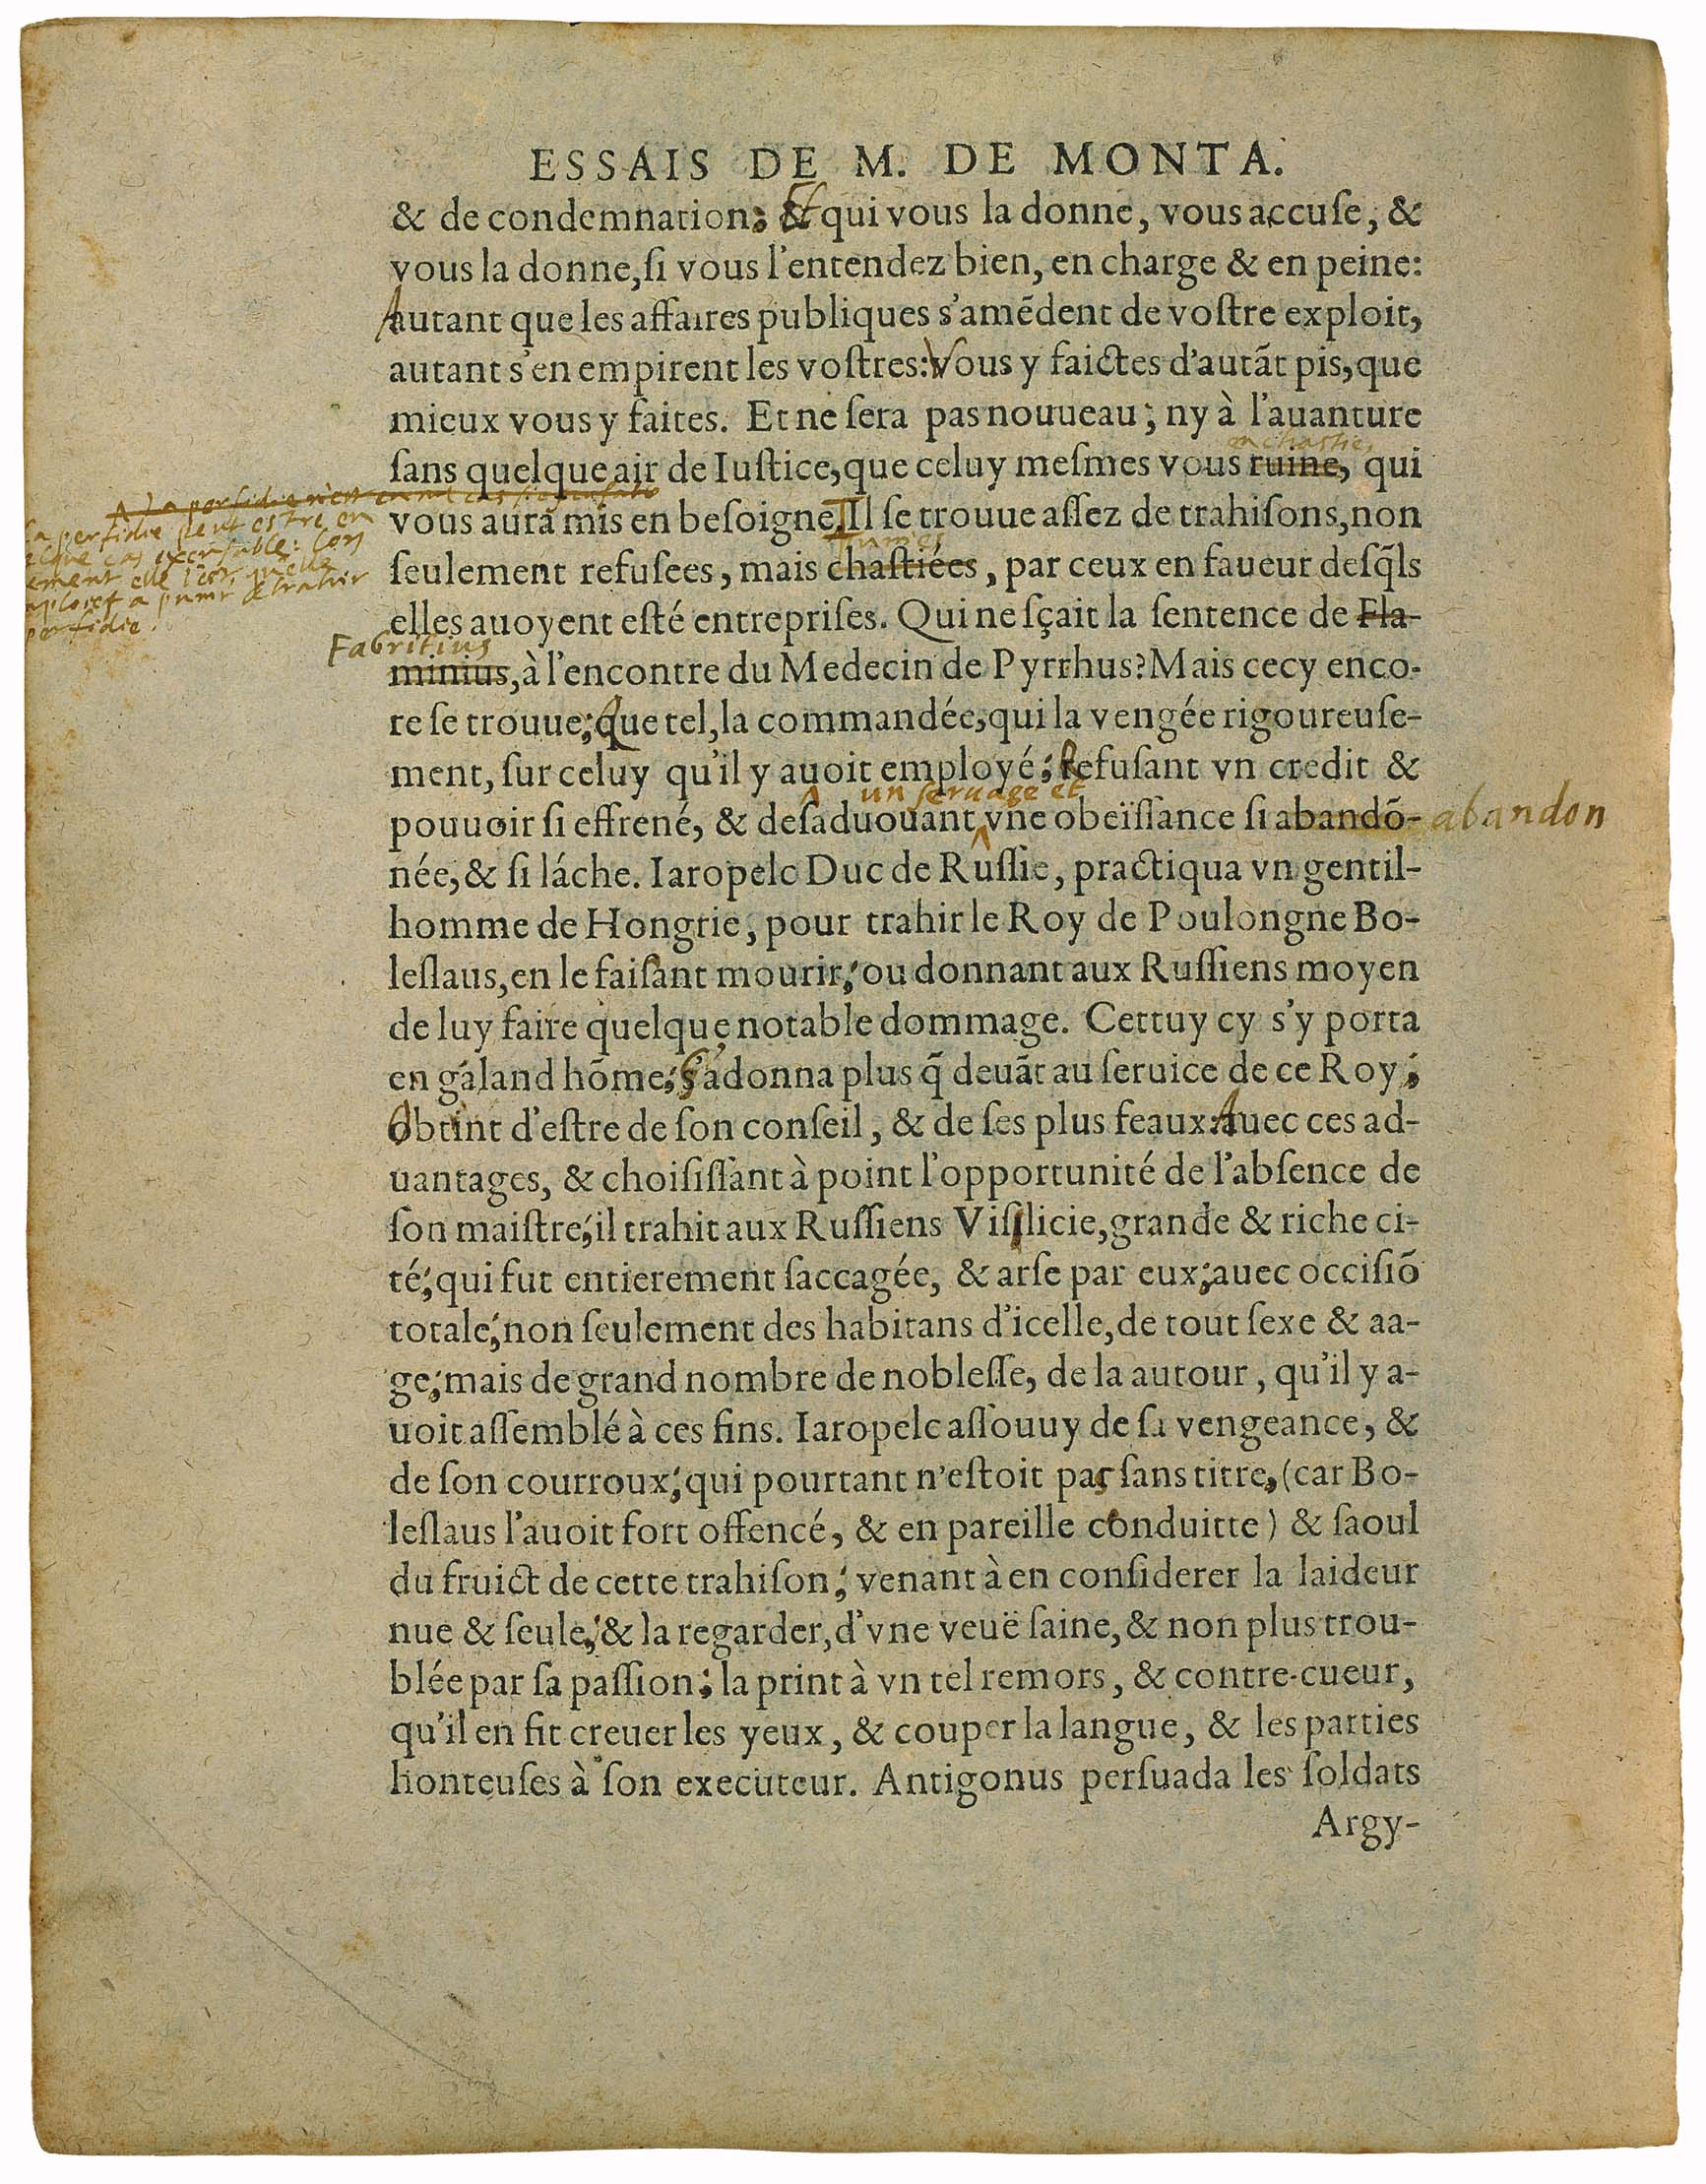 ESSAIS DE M. DE MONTA.
& de condemnation: Et qui vous la donne, vous accuſe, &
vous la donne, ſi vous l'entendez bien, en charge & en peine:
Autant que les affaires publiques s'amẽdent de voſtre exploit,
autant s'en empirent les voſtres: Vous y faictes d'autãt pis, que
mieux vous y faites. Et ne ſera pas nouueau; ny à l'auanture
chastie,
ſans quelque air de Iuſtice, que celuy meſmes vous ruine, qui
La perfidie peut estre en
cas excusable: lors
elle l'est, qu'elle
a punir & trahir
perfidie.
vous aura mis en beſoigne. Il ſe trouue aſſez de trahiſons, non
punies
ſeulement refuſees, mais chaſtiées, par ceux en faueur deſq̃ls
elles auoyent eſté entrepriſes. Qui ne ſçait la ſentence de Fla-
Fabritius
minius, à l'encontre du Medecin de Pyrrhus? Mais cecy enco-
re ſe trouue; Que tel, la commandée, qui la vengée rigoureuſe-
ment, ſur celuy qu'il y auoit employé; Refuſant vn credit &
un seruage et
pouuoir ſi effrené, & deſaduouant vne obeïſſance ſi abandõ-
abandon
née, & ſi láche. Iaropelc Duc de Ruſſie, practiqua vn gentil-
homme de Hongrie, pour trahir le Roy de Poulongne Bo-
leſlaus, en le faiſant mourir; ou donnant aux Ruſſiens moyen
de luy faire quelque notable dommage. Cettuy cy s'y porta
en galand hõme; S'adonna plus q̃ deuãt au ſeruice de ce Roy;
Obtint d'eſtre de ſon conſeil, & de ſes plus feaux. Auec ces ad-
uantages, & choiſiſſant à point l'opportunité de l'abſence de
ſon maiſtre; il trahit aux Ruſſiens Viſilicie, grande & riche ci-
té; qui fut entierement ſaccagée, & arſe par eux; auec occiſiõ
totale; non ſeulement des habitans d'icelle, de tout ſexe & aa-
ge; mais de grand nombre de nobleſſe, de la autour, qu'il y a-
uoit aſſemblé à ces fins. Iaropelc aſſouuy de ſa vengeance, &
de ſon courroux; qui pourtant n'eſtoit pas ſans titre, (car Bo-
leſlaus l'auoit fort offencé, & en pareille conduitte) & ſaoul
du fruict de cette trahiſon; venant à en conſiderer la laideur
nue & ſeule; & la regarder, d'vne veuë ſaine, & non plus trou-
blée par ſa paſſion; la print à vn tel remors, & contre-cueur,
qu'il en fit creuer les yeux, & couper la langue, & les parties
honteuſes à ſon executeur. Antigonus perſuada les ſoldats
Argy-